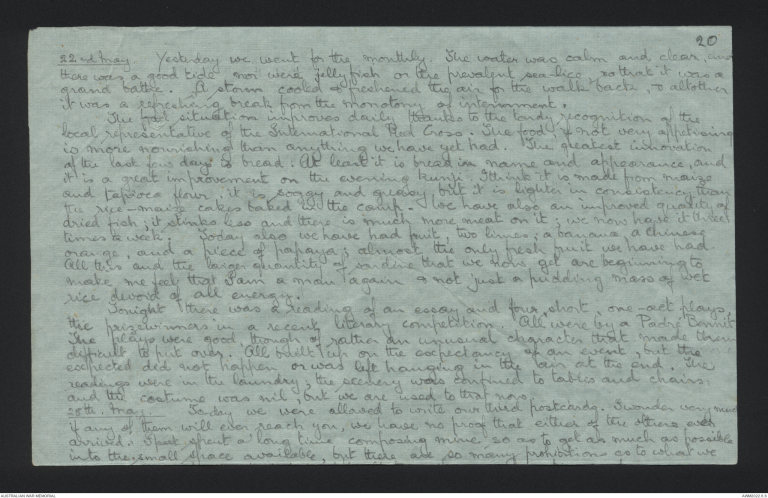 20
22nd May. Yesterday we went for the monthly. The water was calm and clear, and
there was a good tide nor were jelly fish or the prevalent sea-lice, so that it was a
grand bathe. A storm cooled & freshened the air for the walk back, & altother
it was a refreshing break from the monotony of internment.
The food situation improves daily thanks to the tardy recognition of the
local representative of the International Red Cross. The food, if not very appetising
is more nourishing than anything we have yet had. The greatest innovation
of the last few days is bread. At least it is bread in name and appearance, and
it is a great improvement on the evening kunji. I think it is made from maize
and tapioca flour; it is soggy and greasy but it is lighter in consistency than
the rice-maize cakes baked in the camp. We have also an improved quality of
dried fish, it stinks less and there is much more meat on it; we now have it three
times a week. Today also we have had fruit, two limes, a banana, a chinese
orange, and a piece of papaya; almost the only fresh fruit we have had.
All this and the larger quantity of sardine that we now get are beginning to
make me feel that I am a man again & not just a pudding mass of wet
rice devoid of all energy.
Tonight there was a reading of an essay and four short, one-act plays,
the prizewinners in a recent literary competition. All were by a Padre Bennitt
The plays were good, though of rather an unusual character that made them
difficult to put over. All built up on the expectancy of an event, but the
expected did not happen or was left hanging in the air at the end. The
readings were in the laundry, the scenery was confined to tables and chairs,
and the costume was nil, but we are used to that now.
28th. May. Today we were allowed to write our third postcards. I wonder very much
if any of them will ever reach you, we have no proof that either of the others ever
arrived. I spent a long time composing mine so as to get as much as possible
into the small space available, but there are so many prohibitions as to what we
AUSTRALIAN WAR MEMORIAL